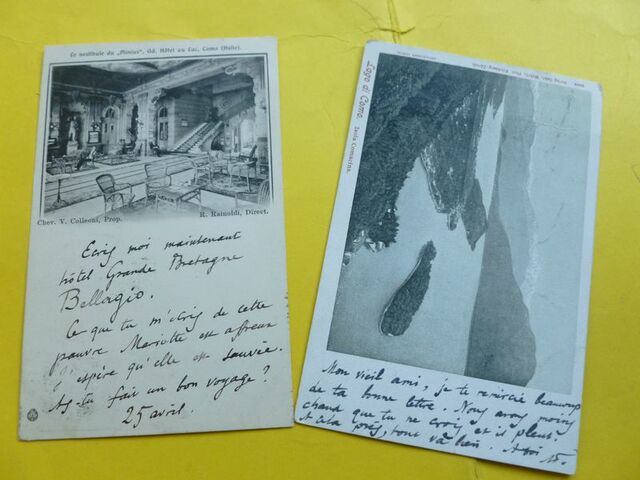 Le vestibule du „Plinius", Gd. Hôtel au Lac, Como (Italie).
Chev. V. Colleoni, Prop.
R. Rainoldi, Direct.
Ecris moi maintenant
hôtel Grande Bretagne
Bellagio.
Ce que tu m'écris de cette
pauvre Mariette est affreux
J'espère qu'elle est sauvée.
As-tu fait un bon voyage?
25 avril.
Lago di Como.
Isola Comacina.
Mon vieil ami, je te remercie beaucoup
de ta bonne lettre. Nous avons moins
chaud que tu ne crois et il pleut.
A cela près, tout va bien. A toi